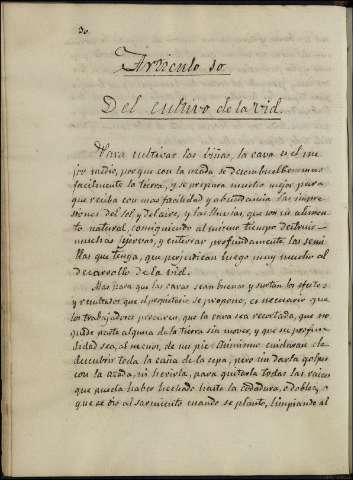 30
Articulo 10
Del cultivo de la vid.
Para cultivar las viñas, la cava es el me
jor medio, porque con la azada se desembuelbe mas
facilmente la tierra, y se prepara mucho mejor para
que reciba con mas facilidad y abundancia las impre
siones del sol y del aire, y las lluvias, que son su alimen
to natural, consiguiendo al mismo tiempo destruir
muchas yervas, y enterrar profundamente las semi
llas que tenga, que perjudican luego muy mucho al
desarrollo de la vid.
Mas para que las cavas sean buenas y surtan los efectos
y resultados que el propietario se propone, es necesario que
los trabajadores procuren, que la cava sea recortada, que no
quede parte alguna de la tierra sin mover, y que su profun
didad sea, al menos, de un pie. Asimismo cuidaran de
descubrir toda la caña de la cepa, pero sin darla golpes
con la azada, ni herirla, para quitarla todas las raices
que pueda haber hechado hasta la codadura, o doblez,
que se dio al sarmiento cuando se planto, limpiando al